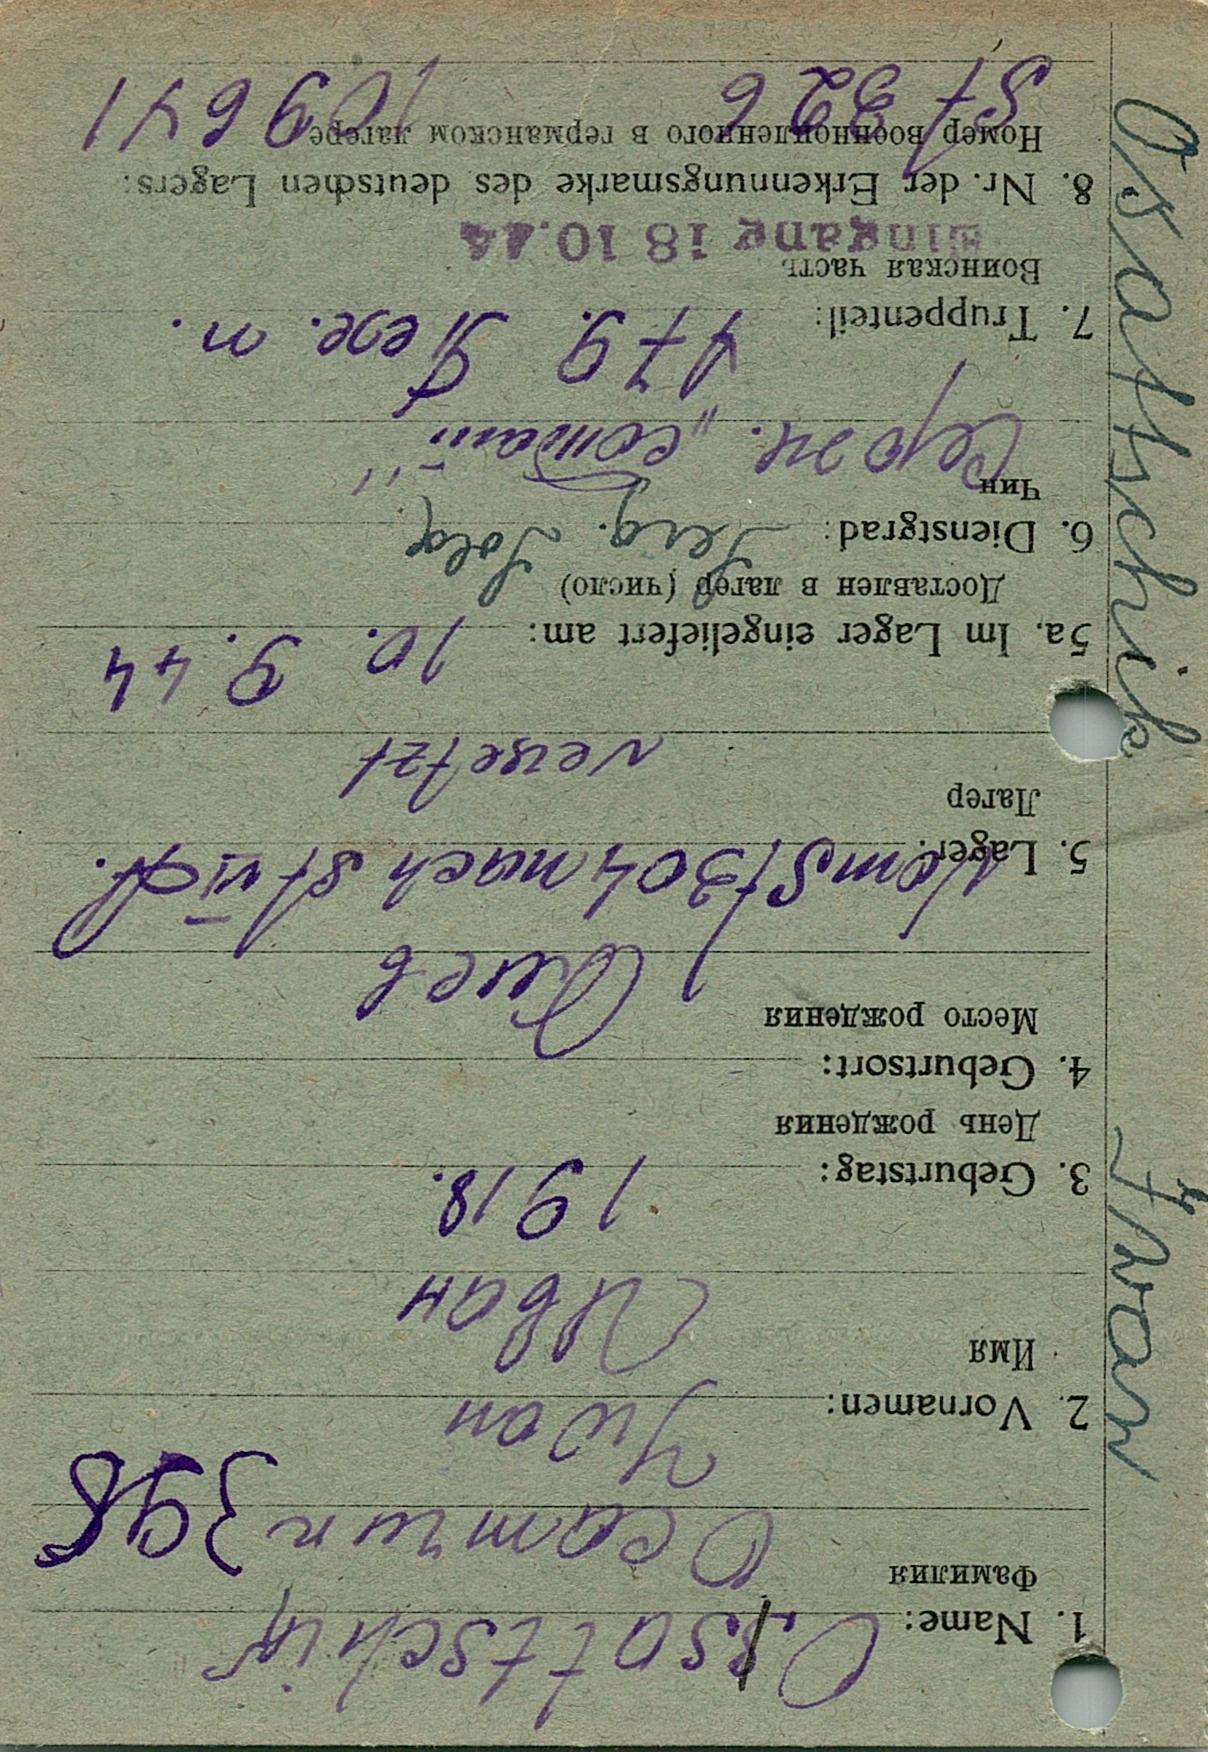 Osattschik Iwan
1. Name: Ossattschik
Фамилия Осатчик 398
2. Vornamen: Iwan
Имя Иван
3. Geburtstag: 1918.
День рождения
4. Geburtsort:
Место рождения Киев
5. Lager: vom St 304 nach St VI
Лагер versetzt
5a. Im Lager eingeliefert am: 10. 9. 44
Доставлен в лагер (число)
6. Dienstgrad: Serg. Sold.
Чин Серж. „солдат"
7. Truppenteil: 479.
Воинская часть
Eingang 18 10.44
8. Nr. der Erkennungsmarke des deutschen Lagers:
Номер военнопленного в германском лагере
St 326 109641